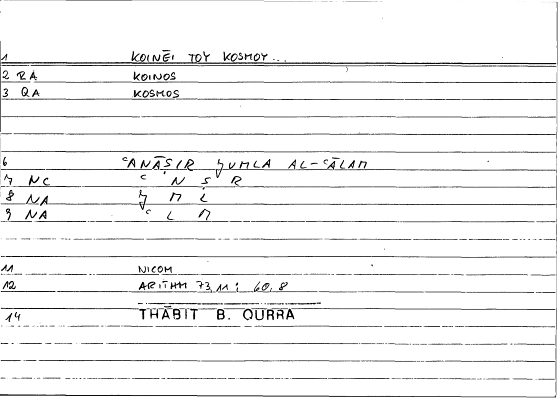 1 KOINĒI TOY KOSMOY...
2 RA KOINOS
3 QA KOSMOS
6 ʿANĀṢIR ǦUMLA AL-ʿĀLAM
7 NC ʿ N Ṣ R
8 NA Ǧ M L
9 NA ʿ L M
11 NICOM
12 ARITHM 73,11 : 60,8
14 THĀBIT B. QURRA